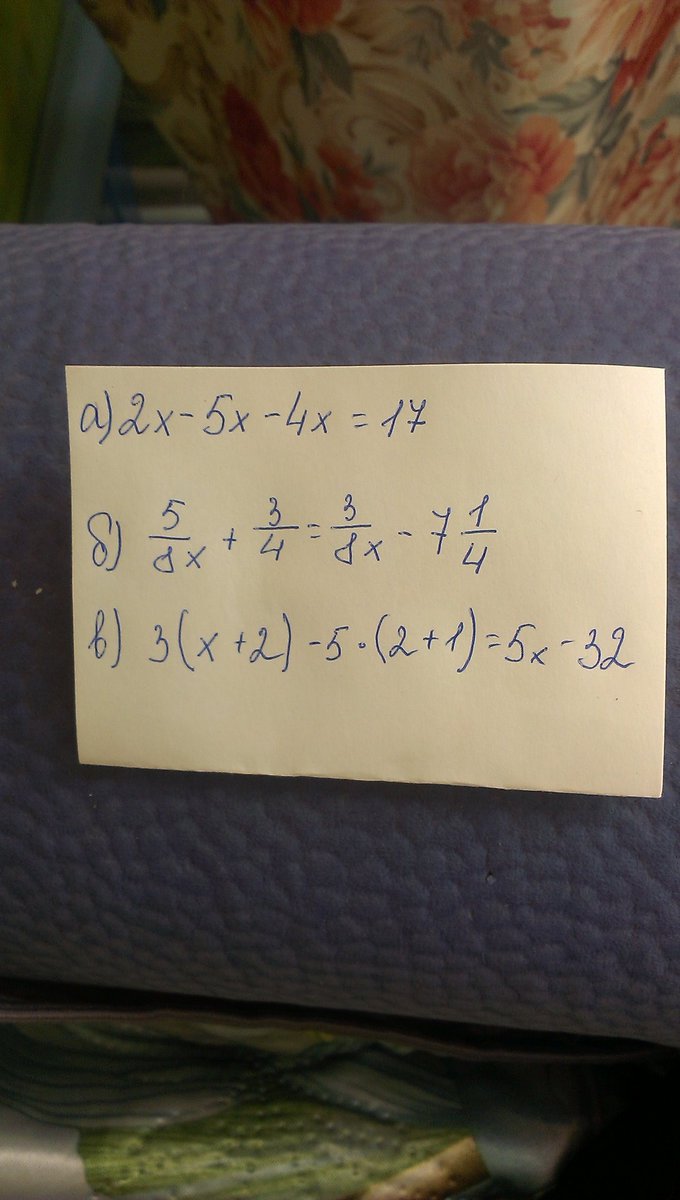 а) 2x - 5x - 4x = 17
б) 5/8x + 3/4 = 3/8x - 7 1/4
в) 3(x + 2) - 5 · (2 + 1) = 5x - 32